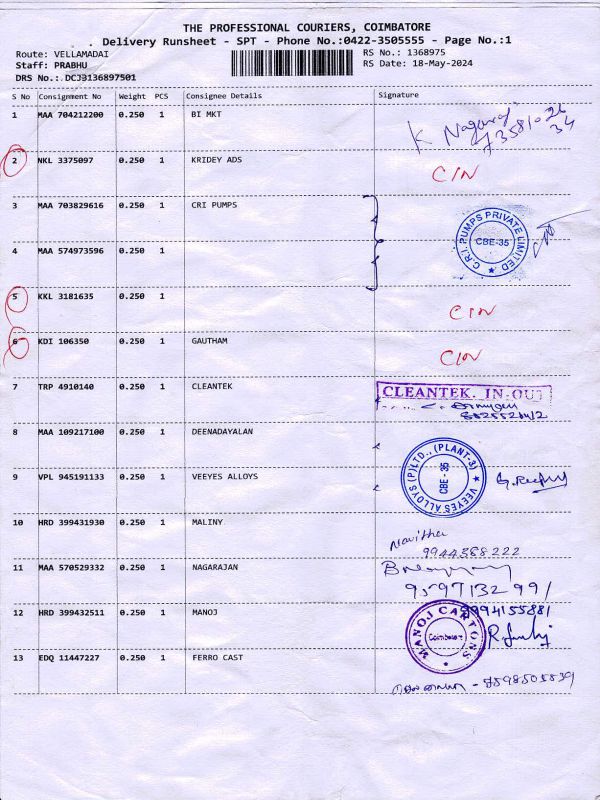 THE PROFESSIONAL COURIERS, COIMBATORE
. Delivery Runsheet - SPT - Phone No.:0422-3505555 - Page No.:1
Route: VELLAMADAI RS No.: 1368975
Staff: PRABHU RS Date: 18-May-2024
DRS No.: DCJB136897501
S No Consignment No Weight PCS Consignee Details Signature
1 MAA 704212200 0.250 1 BI MKT K Nagaraj
2 NKL 3375097 0.250 1 KRIDEY ADS CIN
3 MAA 703829616 0.250 1 CRI PUMPS
C.R.I. PUMPS PRIVATE LIMITED CBE-35
4 MAA 574973596 0.250 1
5 KKL 3181635 0.250 1 CIN
6 KDI 106350 0.250 1 GAUTHAM CIN
7 TRP 4910140 0.250 1 CLEANTEK CLEANTEK. IN-OUT
8 MAA 109217100 0.250 1 DEENADAYALAN
VEEYES ALLOYS (P)LTD., (PLANT-3) CBE - 35
9 VPL 945191133 0.250 1 VEEYES ALLOYS
10 HRD 399431930 0.250 1 MALINY
9944388222
11 MAA 570529332 0.250 1 NAGARAJAN
9597132991
12 HRD 399432511 0.250 1 MANOJ 9994155881
MANOJ CARTONS Coimbatore
13 EDQ 11447227 0.250 1 FERRO CAST
8598505839